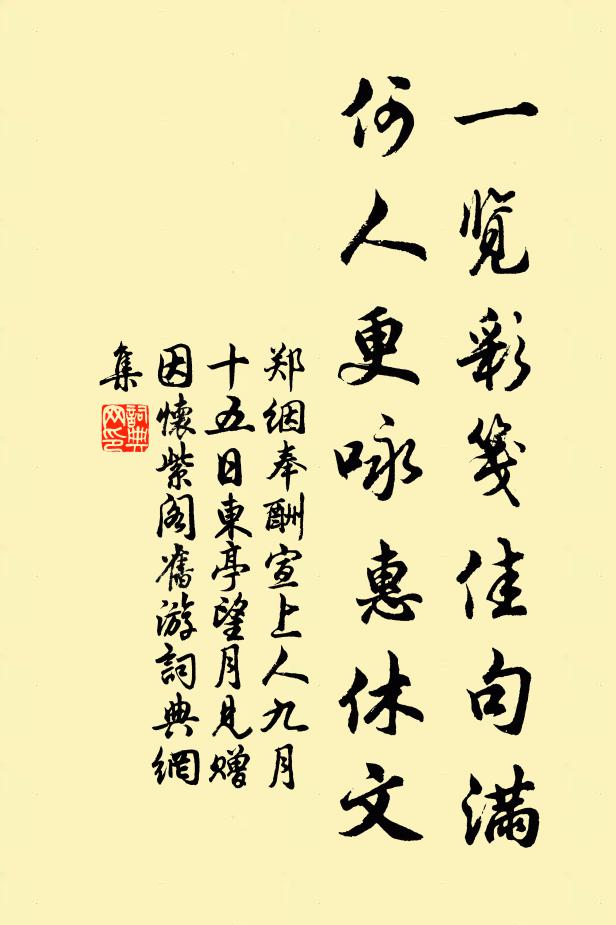 一览彩笺佳句满
何人更咏惠休文
郑絪奉酬宣上人九月
十五日東亭望月見赠
因懷紫阁舊游詞典網
集
詞典網印